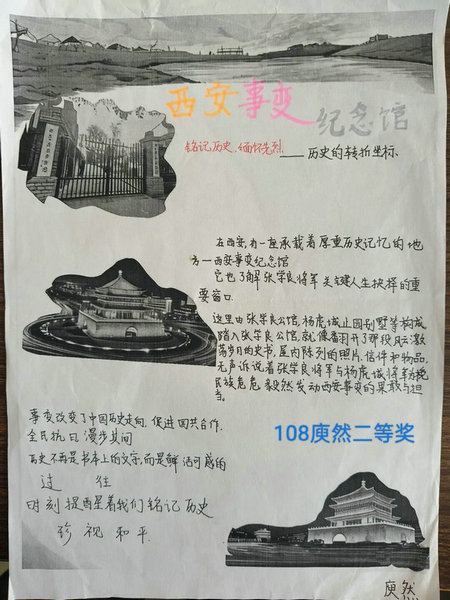 西安事变
纪念馆
铭记历史、缅怀先烈
——历史的转折坐标.
在西安,有一座承载着厚重历史记忆的地
方一西安事变纪念馆
它也了解张学良将军关键人生抉择的重
要窗口
这里由张学良公馆,杨虎城止园别墅等构成
踏入张学良公馆,就像翻开了那段风云激
荡岁月的史书,屋内陈列的照片,信件和物品,
无声诉说着张学良将军与杨虎城将军为挽
民族危危 毅然发动西安事变的果敢与担
当。
事变改变了中国历史走向,促进国共合作,
全民抗日 漫步其间
历史不再是书本上的文字,而是鲜活可感的
过往
时刻提醒着我们铭记历史
珍视和平
108庾然二等奖
庾然